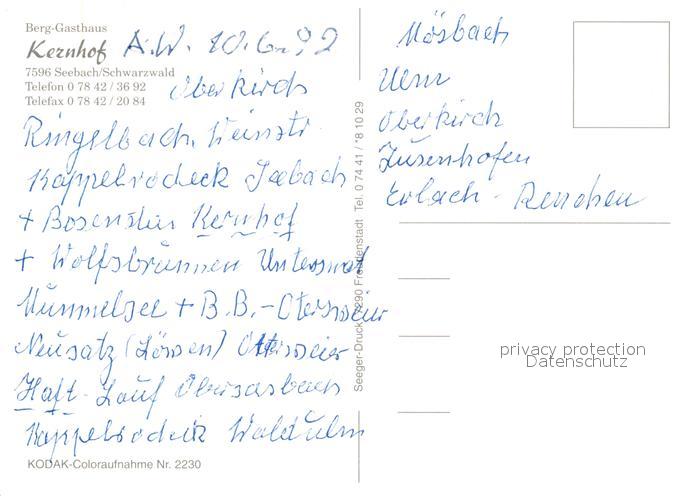 Berg-Gasthaus
Kernhof A.W. 10.6.92
7596 Seebach/Schwarzwald
Telefon 0 78 42 / 36 92
Telefax 0 78 42 / 20 84
Oberkirch
Ringelbach, Weinstr.
Kappelrodeck Seebach
+ Bosenstein Kernhof
+ Wolfsbrunnen Untersmat
Mummelsee + B.B. - Ottersweier
Neusatz (Löwen) Ottersweier
Haft - Lauf Obersasbach
Kappelrodeck Waldulm
KODAK-Coloraufnahme Nr. 2230
Seeger-Druck, 7290 Freudenstadt Tel. 0 74 41 / *8 10 29
Mösbach
Ulm
Oberkirch
Zusenhofen
Erlach - Renchen
privacy protection
Datenschutz